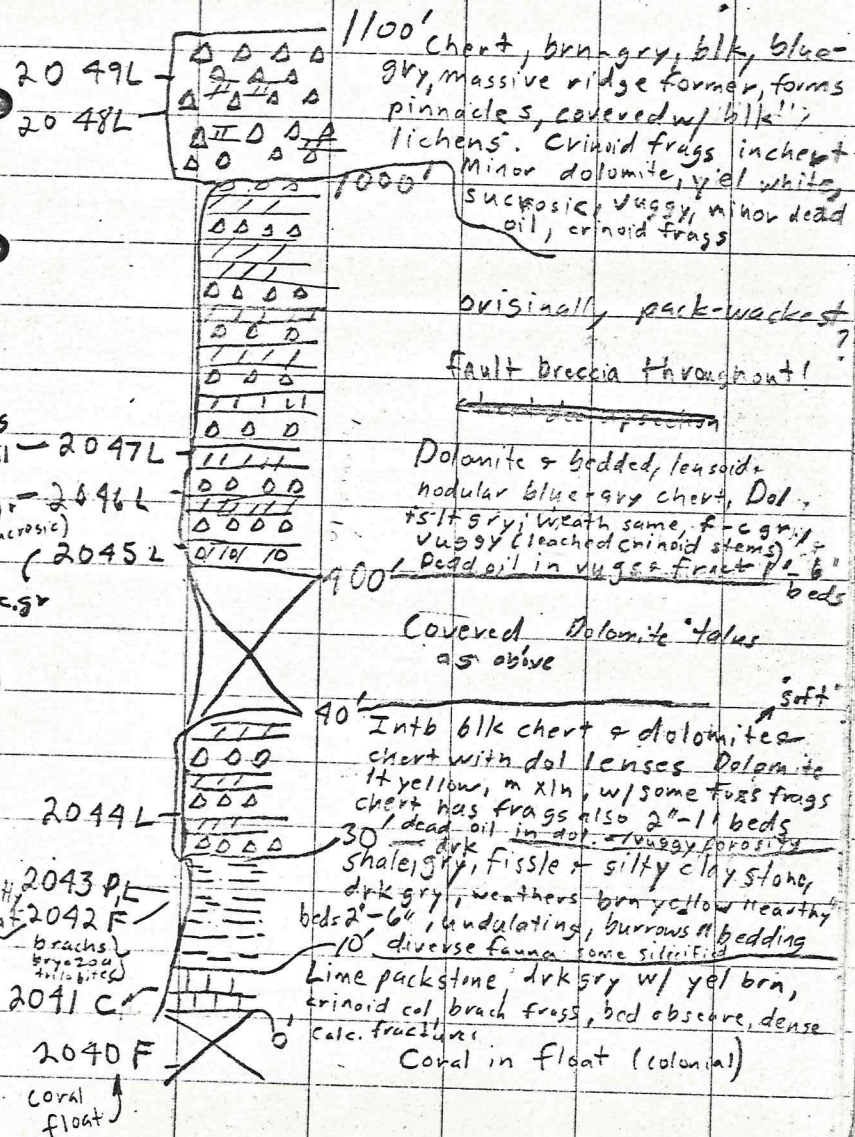 1100'
Chert, brn-gry, blk, blue-
gry, massive ridge former, forms
pinnacles, covered w/ blk
lichens. Crinoid frags in chert
Minor dolomite, yel white,
sucrosic, vuggy, minor dead
oil, crinoid frags
2049L
2048L
1000'
originally pack-wackest
?
fault breccia throughout!
2047L
2046L
2045L
c.gr
Dolomite & bedded, lensoid &
nodular blue-gry chert, Dol
is lt gry, weath same, f-c gr,
vuggy (leached crinoid stems)
Dead oil in vugs & fract 1"-6"
beds
400'
Covered Dolomite talus
as above
"soft"
40'
Intb blk chert & dolomite &
chert with dol lenses Dolomite
lt yellow, m xln, w/ some foss frags
chert has frags also 2"-11 beds
dead oil in dol. vuggy porosity
2044L
30
drk
Shale, gry, fissle & silty claystone,
drk gry, weathers brn yellow "earthy"
beds 2"-6", undulating, burrows || bedding
diverse fauna some silicified
2043 P,L
2042 F
brachs
bryozoa
trilobites
10'
Lime packstone, drk gry w/ yel brn,
crinoid col, brach frags, bed obscure, dense
calc. fractures
2041 C
0'
2040 F
Coral in float (colonial)
coral
float